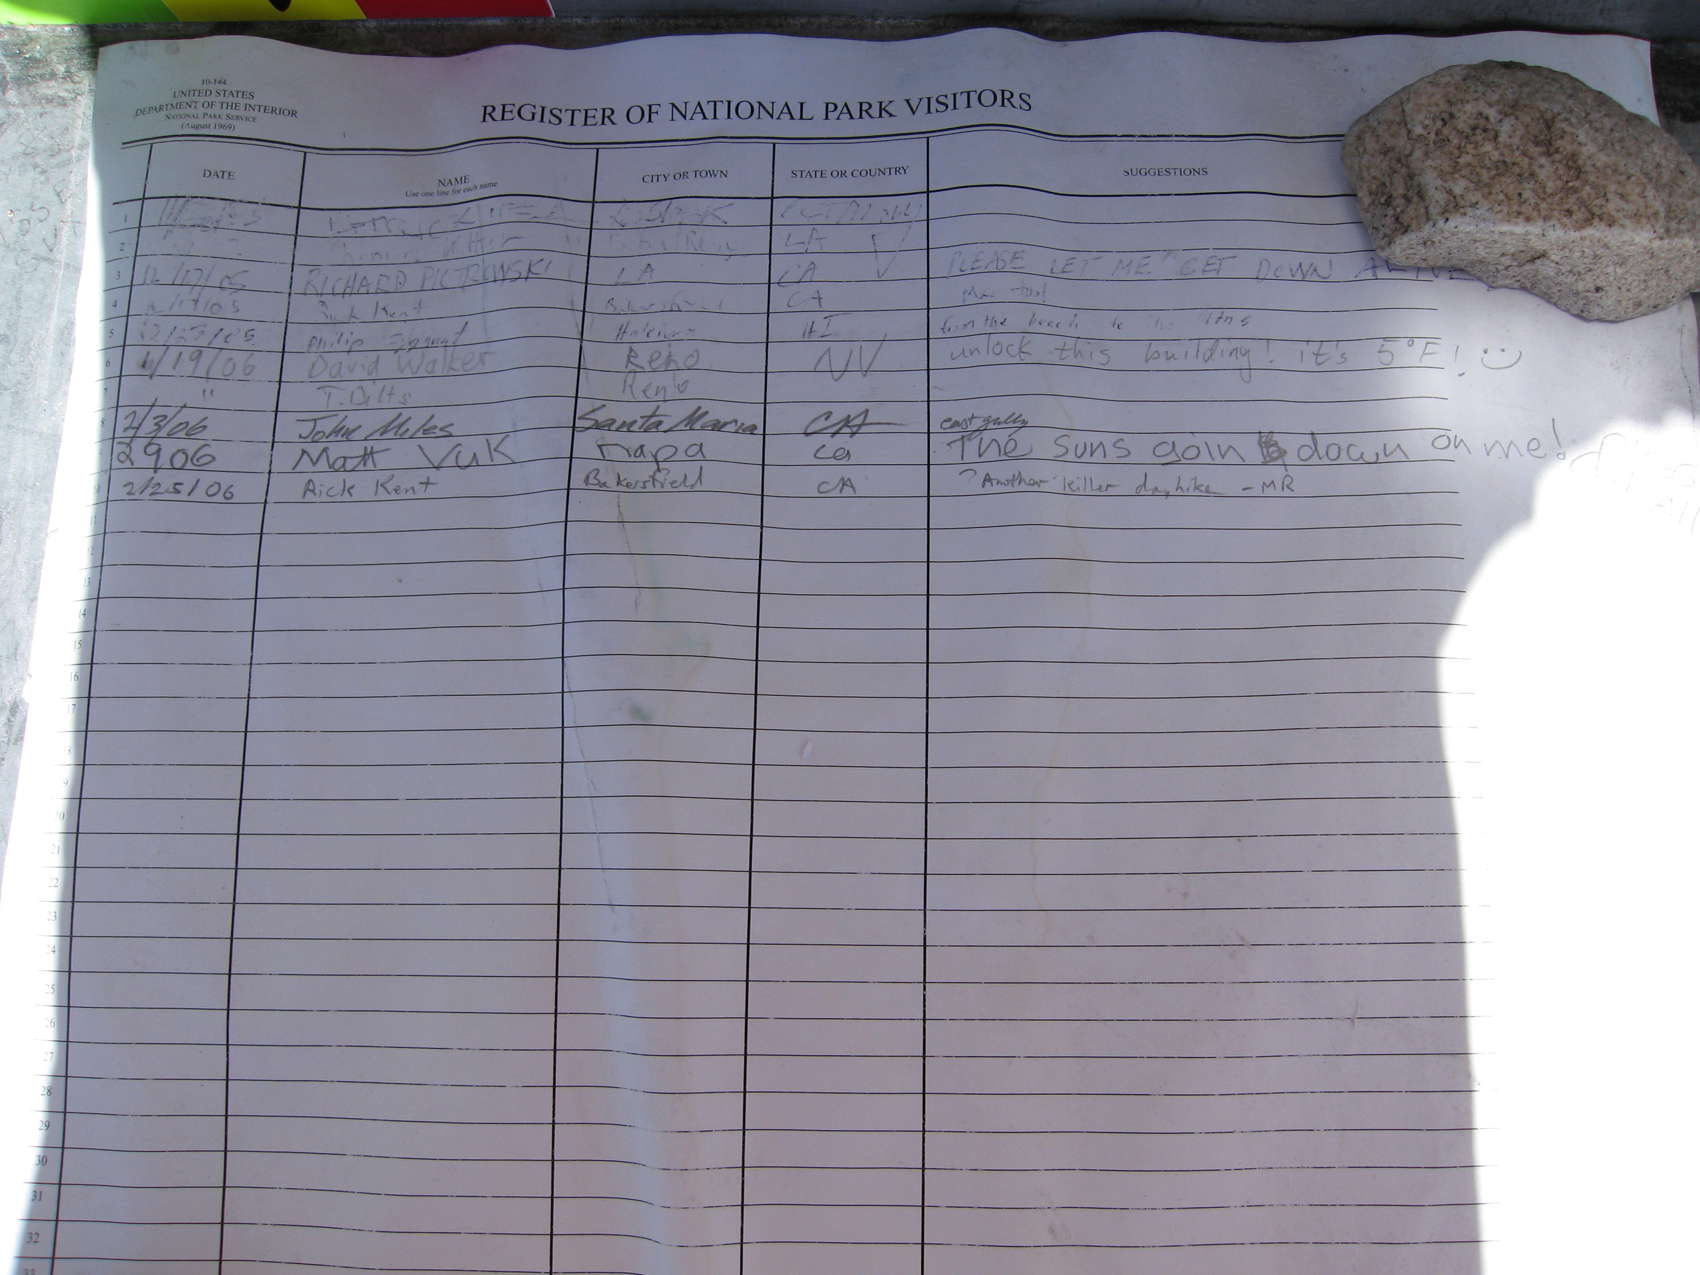 10-144
UNITED STATES
DEPARTMENT OF THE INTERIOR
NATIONAL PARK SERVICE
(August 1969)
REGISTER OF NATIONAL PARK VISITORS
DATE NAME CITY OR TOWN STATE OR COUNTRY SUGGESTIONS
Use one line for each name
1
2 CA
3 12/17/05 RICHARD PIOTROWSKI LA CA PLEASE LET ME GET DOWN ALIVE
4 12/17/05 Rick Kent Bakersfield CA
5 12/23/05 Philip HI from the beach to the mtns
6 1/19/06 David Walker Reno NV unlock this building! it's 5°F!
7 " T. Dilts Reno
8 2/3/06 John Miles Santa Maria CA east gully
2906 Matt Vuk napa ca The suns goin down on me!
2/25/06 Rick Kent Bakersfield CA ? Another killer dayhike - MR
11
12
13
14
15
16
17
18
19
20
21
22
23
24
25
26
27
28
29
30
31
32
33